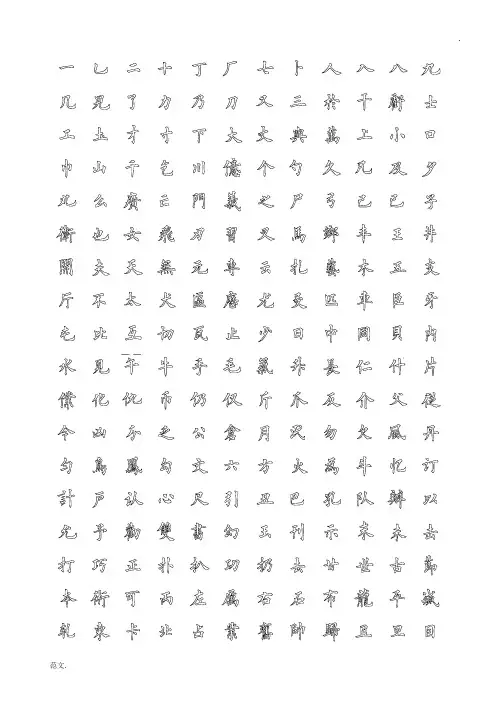 一 乙 二 十 丁 厂 七 卜 人 入 八 九
几 兒 了 力 乃 刀 又 三 於 干 虧 士
工 土 才 寸 下 大 丈 與 萬 上 小 口
巾 山 千 乞 川 億 个 勺 久 凡 及 夕
丸 么 廣 亡 門 義 之 尸 弓 己 已 子
衛 也 女 飛 刃 習 叉 馬 鄉 丰 王 井
開 夫 天 無 元 專 云 扎 藝 木 五 支
厅 不 太 犬 區 歷 尤 友 匹 車 巨 牙
屯 比 互 切 瓦 止 少 日 中 岡 貝 內
水 見 午 牛 手 毛 氣 升 長 仁 什 片
僕 化 仇 币 仍 仅 斤 爪 反 介 父 從
今 凶 分 乏 公 倉 月 氏 勿 欠 風 丹
勻 烏 鳳 勾 文 六 方 火 為 斗 忆 訂
計 戶 认 心 尺 引 丑 巴 孔 队 辦 以
允 予 勸 雙 書 幻 玉 刊 示 末 未 击
打 巧 正 扑 扒 功 扔 去 甘 世 古 節
本 術 可 丙 左 厲 右 石 布 龍 平 滅
軋 東 卡 北 占 業 舊 帥 歸 且 旦 目
范文.